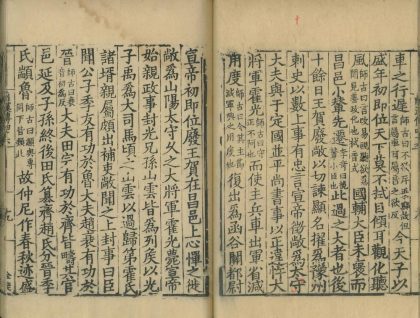 車之行遲師古曰今天子以
盛年初即位天下莫不拭目傾耳觀化聽
風師古曰國輔大臣未襃而
昌邑小輦先遷此過之大者也後
十餘日王賀廢敞以切諫顯名擢爲豫州
刺史以數上事有忠言宣帝徵敞爲太中
大夫與于定國並平尚書事以正違忤大
將軍霍光而使主兵車出軍省減
用度師古曰減軍興之用度也復出爲函谷關都尉
宣帝初即位廢王賀在昌邑上心憚之徙
敞爲山陽太守久之大將軍霍光薨宣帝
始親政事封光兄孫山雲皆爲列侯以光
子禹爲大司馬頃之山雲以過歸第霍氏
諸壻親屬頗出補吏敞聞之上封事曰臣
聞公子季友有功於魯大夫趙衰有功於
晉師古曰衰音初爲反大夫田完有功於齊皆疇其官
邑延及子孫終後田氏篡齊趙氏分晉季
氏顓魯師古曰顓與專同下皆類此故仲尼作春秋迹盛